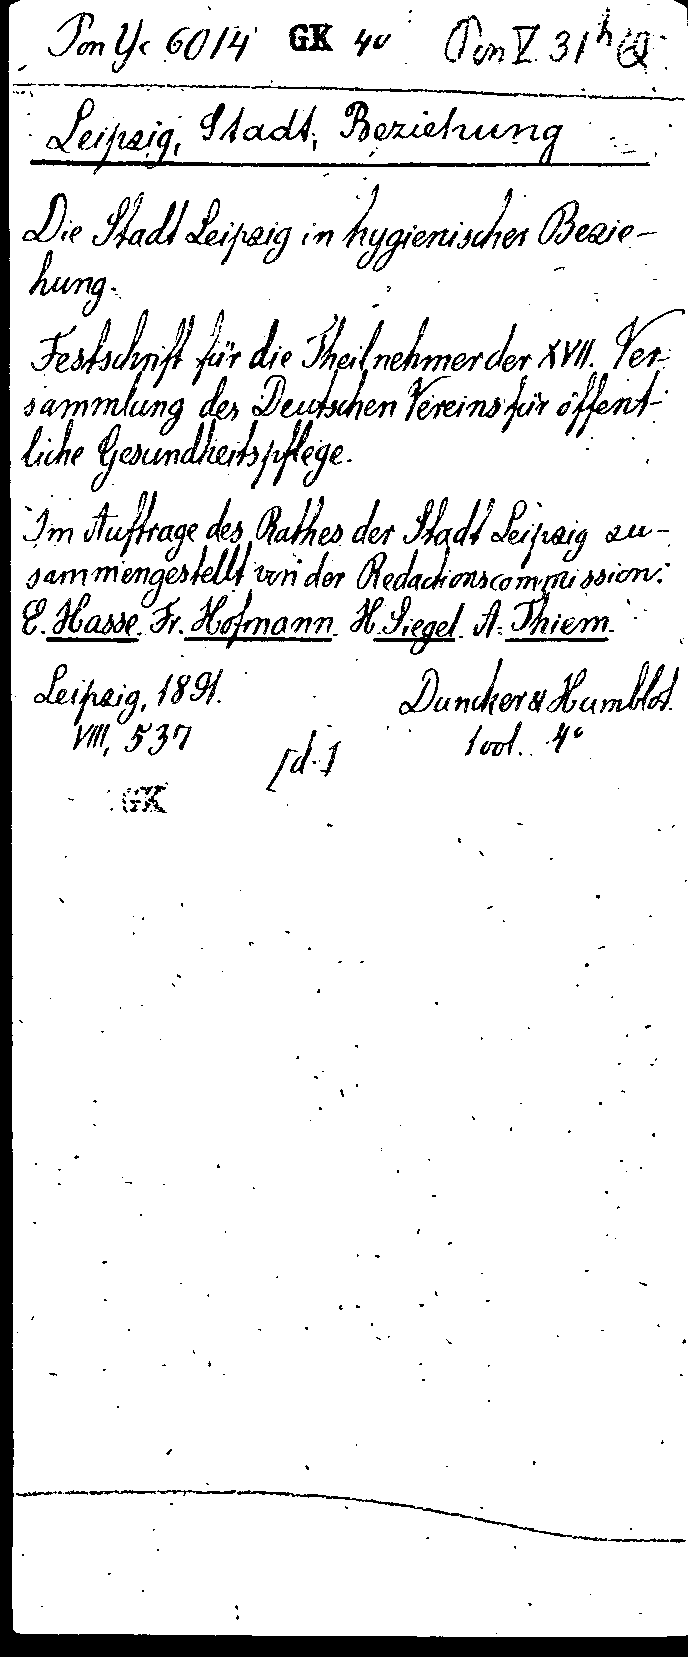 Pon Yc 6014 GK 4° Pon V 31 h Q
Leipzig, Stadt, Beziehung
Die Stadt Leipzig in hygienischer Bezie-
hung.
Festschrift für die Theilnehmer der XVII. Ver-
sammlung des Deutschen Vereins für öffent-
liche Gesundheitspflege.
Im Auftrage des Rathes der Stadt Leipzig zu-
sammengestellt von der Redactionscommission:
E. Hasse. Fr. Hofmann. H. Siegel. A. Thiem.
Leipzig, 1891. Duncker & Humblot.
VIII, 537 1 vol. 4°
[d.]
GK